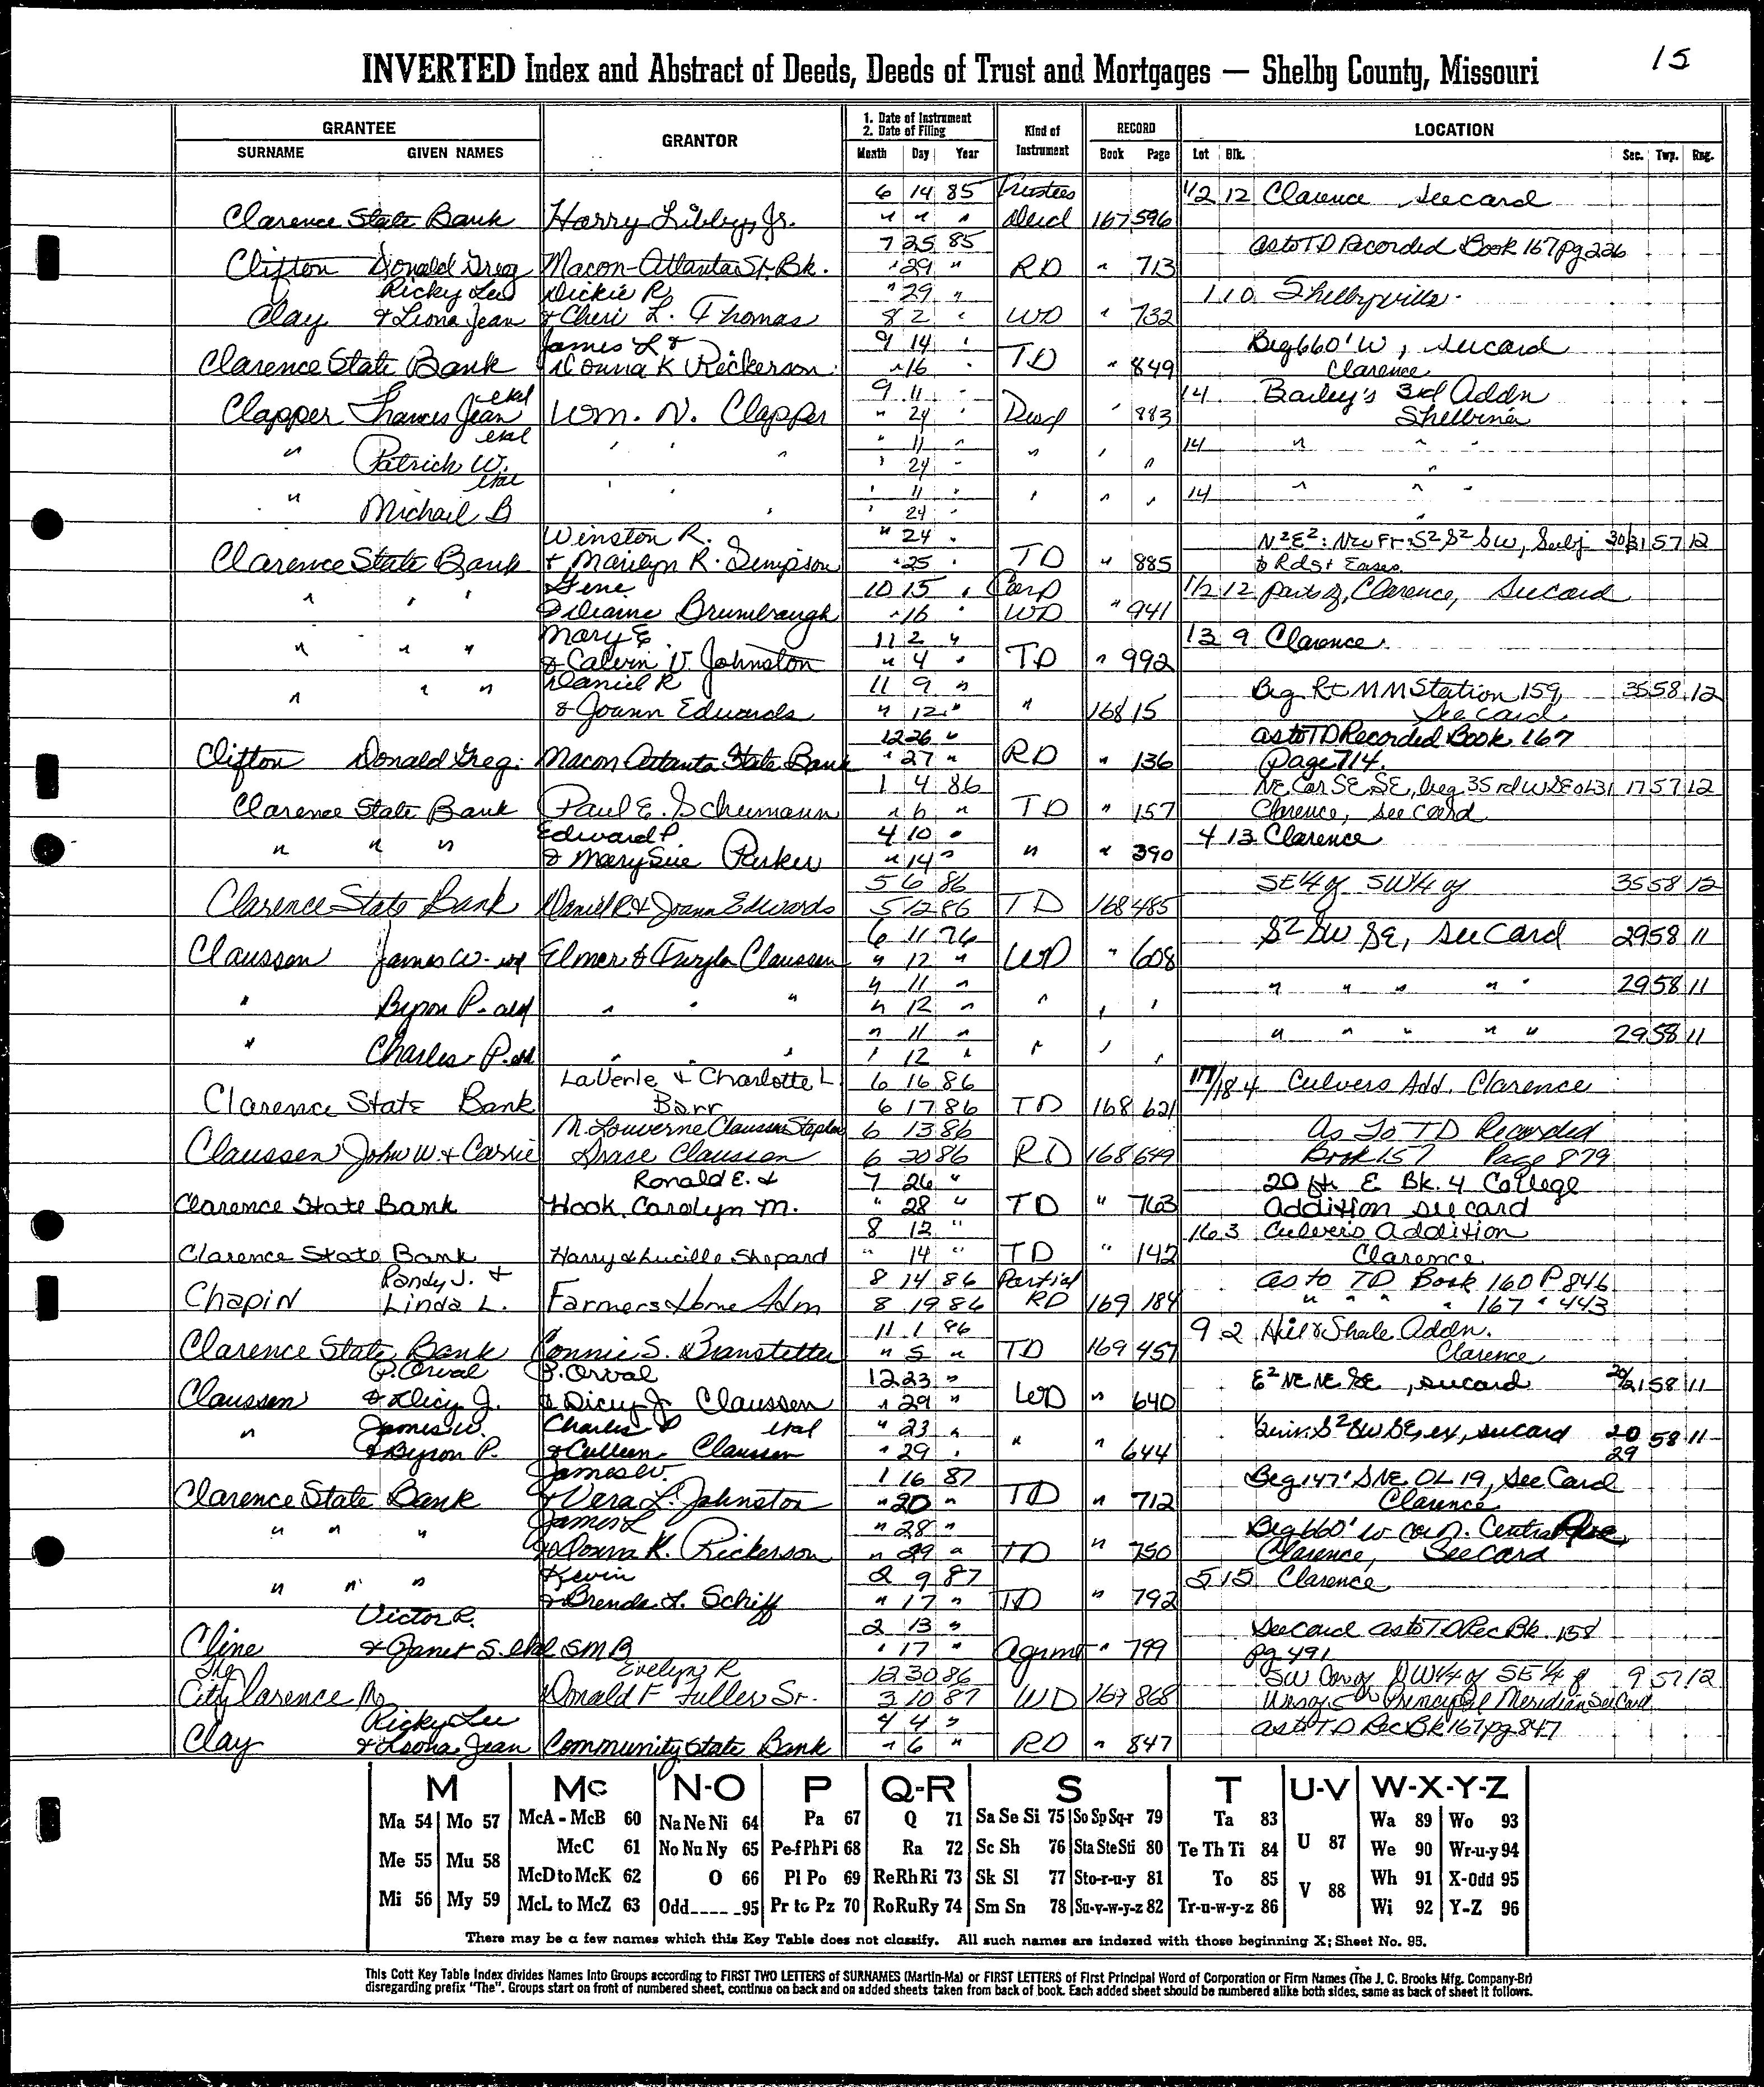 15
INVERTED Index and Abstract of Deeds, Deeds of Trust and Mortgages — Shelby County, Missouri
GRANTEE GRANTOR 1. Date of Instrument 2. Date of Filing Kind of Instrument RECORD LOCATION
SURNAME GIVEN NAMES Month Day Year Book Page Lot Blk. Sec. Twp. Rng.
6 14 85 Trustees 1/2 12 Clarence See card
Clarence State Bank Harry Libby, Jr. " " " Deed 167 596
7 25 85 as to TD Recorded Book 167 pg 226
Clifton Donald Greg Macon-Atlanta St. Bk. " 29 " RD " 713
Ricky Lee Dickie R. " 29 " 1 10 Shelbyville
Clay & Leona Jean & Cheri L. Thomas 8 2 " WD " 732
James L & 9 14 " Beg 660' W, see card
Clarence State Bank Donna K Rickerson " 16 " TD " 849 Clarence
etal 9 11 " 14 Bailey's 3rd Addn
Clapper Frances Jean Wm. N. Clapper " 24 " Deed " 883 Shelbina
etal " 11 " 14 " " "
" Patrick W. " " " " 24 " " " " "
etal " 11 " 14 " " "
" Michael B " " " " 24 " " " " "
Winston R. " 24 " N²E²: NW Fr: S² S² SW, Subj 30/31 57 12
Clarence State Bank & Marilyn R. Dempson " 25 " TD " 885 to Rds & Eases.
" " " Gene 10 15 " Corp 1/2 12 parts of, Clarence, See card
& Deiame Brumbaugh " 16 " WD " 941
Mary E. 11 2 " 13 9 Clarence
" " " & Calvin V. Johnston " 4 " TD " 992
Daniel R 11 9 " Beg Rt MM Station 159, 35 58 12
" " " & Joann Edwards " 12 " " 168 15 See card
12 26 " as to TD Recorded Book 167
Clifton Donald Greg. Macon Atlanta State Bank " 27 " RD " 136 Page 714.
1 4 86 NE Cor SE SE, beg 35 rd W SE OL31 17 57 12
Clarence State Bank Paul E. Schumann " 6 " TD " 157 Clarence, see card
Edward P. 4 10 " 4 13 Clarence
" " " & Mary Sue Parker " 14 " " " 390
5 6 86 SE¼ of SW¼ of 35 58 12
Clarence State Bank Daniel R & Joann Edwards 5 12 86 TD 168 485
6 11 76 S² SW SE, See Card 29 58 11
Claussen James W. etal Elmer & Twyla Claussen " 12 " WD " 608
" 11 " " " " " " 29 58 11
" Byron P. etal " " " " 12 " " " "
" 11 " " " " " " 29 58 11
" Charles P. etal " " " " 12 " " " "
LaVerle & Charlotte L 6 16 86 17/18 4 Culvers Add. Clarence
Clarence State Bank Barr 6 17 86 TD 168 621
M. Louverne Claussen Stephen 6 13 86 As To TD Recorded
Claussen John W. & Carrie Grace Claussen 6 20 86 RD 168 649 Book 157 Page 879
Ronald E. & 7 26 " 20 ft E Bk. 4 College
Clarence State Bank Hook, Carolyn M. " 28 " TD " 763 Addition see card
8 12 " 16 3 Culver's Addition
Clarence State Bank Harry & Lucille Shepard " 14 " TD " 142 Clarence
Randy J. & 8 14 86 Partial as to TD Book 160 P 846
Chapin Linda L. Farmers Home Adm 8 19 86 RD 169 184 " " " " 167 " 443
11 1 86 9 2 Hill & Shale Addn.
Clarence State Bank Connie S. Branstetter " 5 " TD 169 457 Clarence
P. Orval P. Orval 12 23 " E² NE NE SE, see card 20/21 58 11
Claussen & Dicy J. & Dicy J. Claussen " 29 " WD " 640
" James W. Charles P etal " 23 " ½ in S² SW SE, ex, see card 20 58 11
& Byron P. & Culleen Claussen " 29 " " " 644 29
James W. 1 16 87 Beg 147' S NE OL 19, See Card
Clarence State Bank & Vera L. Johnston " 20 " TD " 712 Clarence
James L " 28 " Beg 660' W Cor N. Central Ave,
" " " & Donna K. Rickerson " 29 " TD " 750 Clarence, See Card
Kevin 2 9 87 5 15 Clarence
" " " & Brenda L. Schiff " 17 " TD " 792
Victor R. 2 13 " See card as to TD Rec Bk 158
Cline & Janet S. etal SMB " 17 " Agrmt " 799 pg 491
The Evelyn R 12 30 86 SW Cor of SW¼ of SE¼ of 9 57 12
City Clarence Mo Donald F Fuller Sr. 3 10 87 WD 167 868 W of 5th Principal Meridian See Card
Ricky Lee 4 4 " as to TD Rec Bk 167 pg 847
Clay & Leona Jean Community State Bank " 6 " RD " 847
M Mc N-O P Q-R S T U-V W-X-Y-Z
Ma 54 Mo 57 McA - McB 60 Na Ne Ni 64 Pa 67 Q 71 Sa Se Si 75 So Sp Sq-r 79 Ta 83 Wa 89 Wo 93
McC 61 No Nu Ny 65 Pe-f Ph Pi 68 Ra 72 Sc Sh 76 Sta Ste Sti 80 Te Th Ti 84 U 87 We 90 Wr-u-y 94
Me 55 Mu 58 McD to McK 62 O 66 Pl Po 69 Re Rh Ri 73 Sk Sl 77 Sto-r-u-y 81 To 85 V 88 Wh 91 X-Odd 95
Mi 56 My 59 McL to McZ 63 Odd---- -95 Pr to Pz 70 Ro Ru Ry 74 Sm Sn 78 Su-v-w-y-z 82 Tr-u-w-y-z 86 Wi 92 Y-Z 96
There may be a few names which this Key Table does not classify. All such names are indexed with those beginning X; Sheet No. 95.
This Cott Key Table Index divides Names into Groups according to FIRST TWO LETTERS of SURNAMES (Martin-Ma) or FIRST LETTERS of First Principal Word of Corporation or Firm Names (The J. C. Brooks Mfg. Company-Br)
disregarding prefix "The". Groups start on front of numbered sheet, continue on back and on added sheets taken from back of book. Each added sheet should be numbered alike both sides, same as back of sheet it follows.